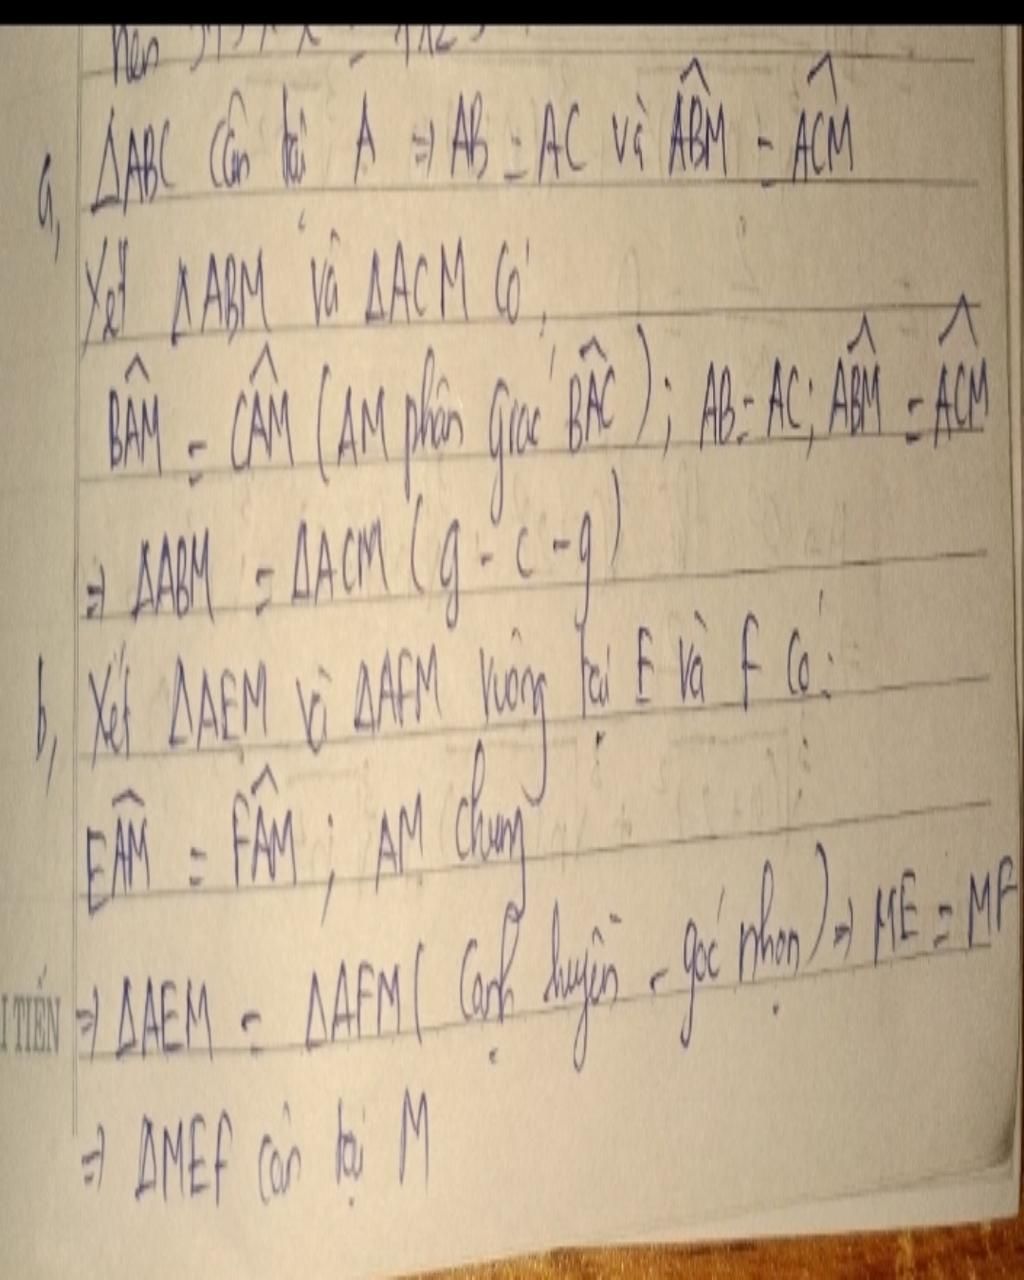 nên
a, ΔABC cân tại A => AB = AC và ABM̂ = ACM̂
Xét ΔABM và ΔACM có:
BÂM = CÂM (AM phân giác BÂC); AB = AC; ABM̂ = ACM̂
=> ΔABM = ΔACM (g - c - g)
b, Xét ΔAEM và ΔAFM vuông tại E và F có:
EÂM = FÂM; AM chung
=> ΔAEM = ΔAFM (cạnh huyền - góc nhọn) => ME = MF
I TIẾN
=> ΔMEF cân tại M